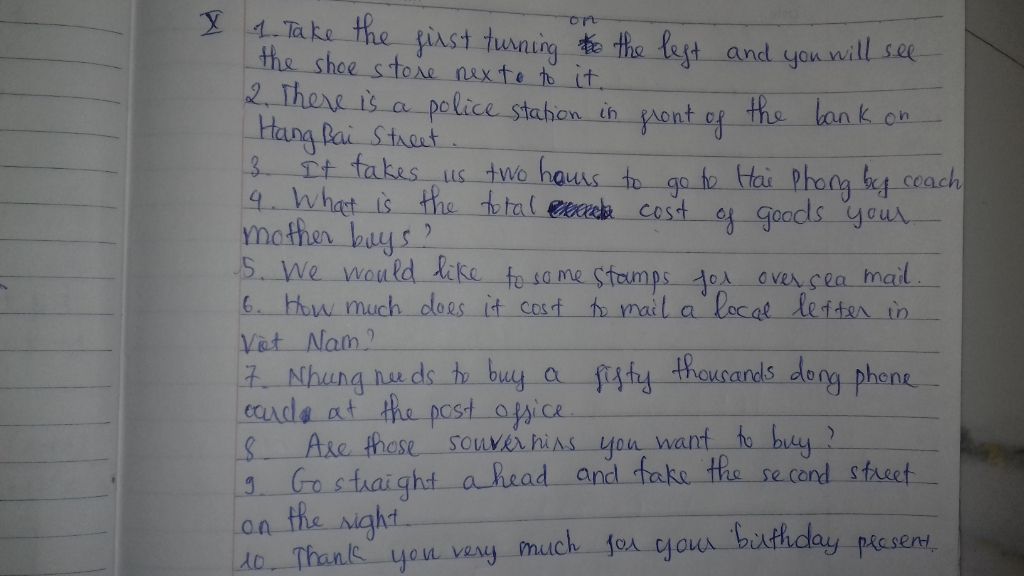 X 1. Take the first turning on the left and you will see
the shoe store next to to it.
2. There is a police station in front of the bank on
Hang Bai Street.
3. It takes us two hours to go to Hai Phong by coach
4. What is the total cost of goods your
mother buys?
5. We would like to some stamps for oversea mail.
6. How much does it cost to mail a local letter in
Viet Nam?
7. Nhung needs to buy a fifty thousands dong phone
card at the post office.
8. Are those souvernirs you want to buy?
9. Go straight a head and take the second street
on the right.
10. Thank you very much for your birthday present.